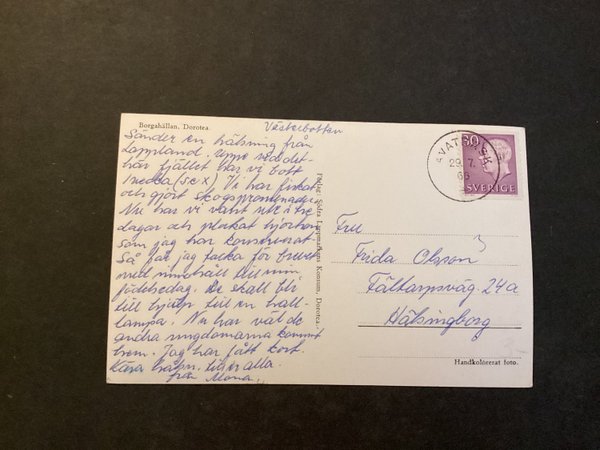 Borgahällan, Dorotea.
Västerbotten
Sänder en hälsning från
Lappland. Uppe vid det
här fjället har vi bott
1 vecka (se x). Vi har fiskat
och gjort skogspromenader.
Nu har vi varit ute i tre
dagar och plockat hjortron
som jag har konserverat.
Så får jag tacka för brevet
med innehåll till min
födelsedag. De skall bli
till hjälp till en hall-
lampa. Nu har väl de
andra ungdomarna kommit
hem. Jag har fått kort.
Kära hälsn. till er alla.
från Mona.
Förlag: Södra Lappmarkens Konsum, Dorotea.
29. 7.
66
SVERIGE
Fru
Frida Olsson
Fältarpsväg 24a
Hälsingborg
Handkolorerat foto.